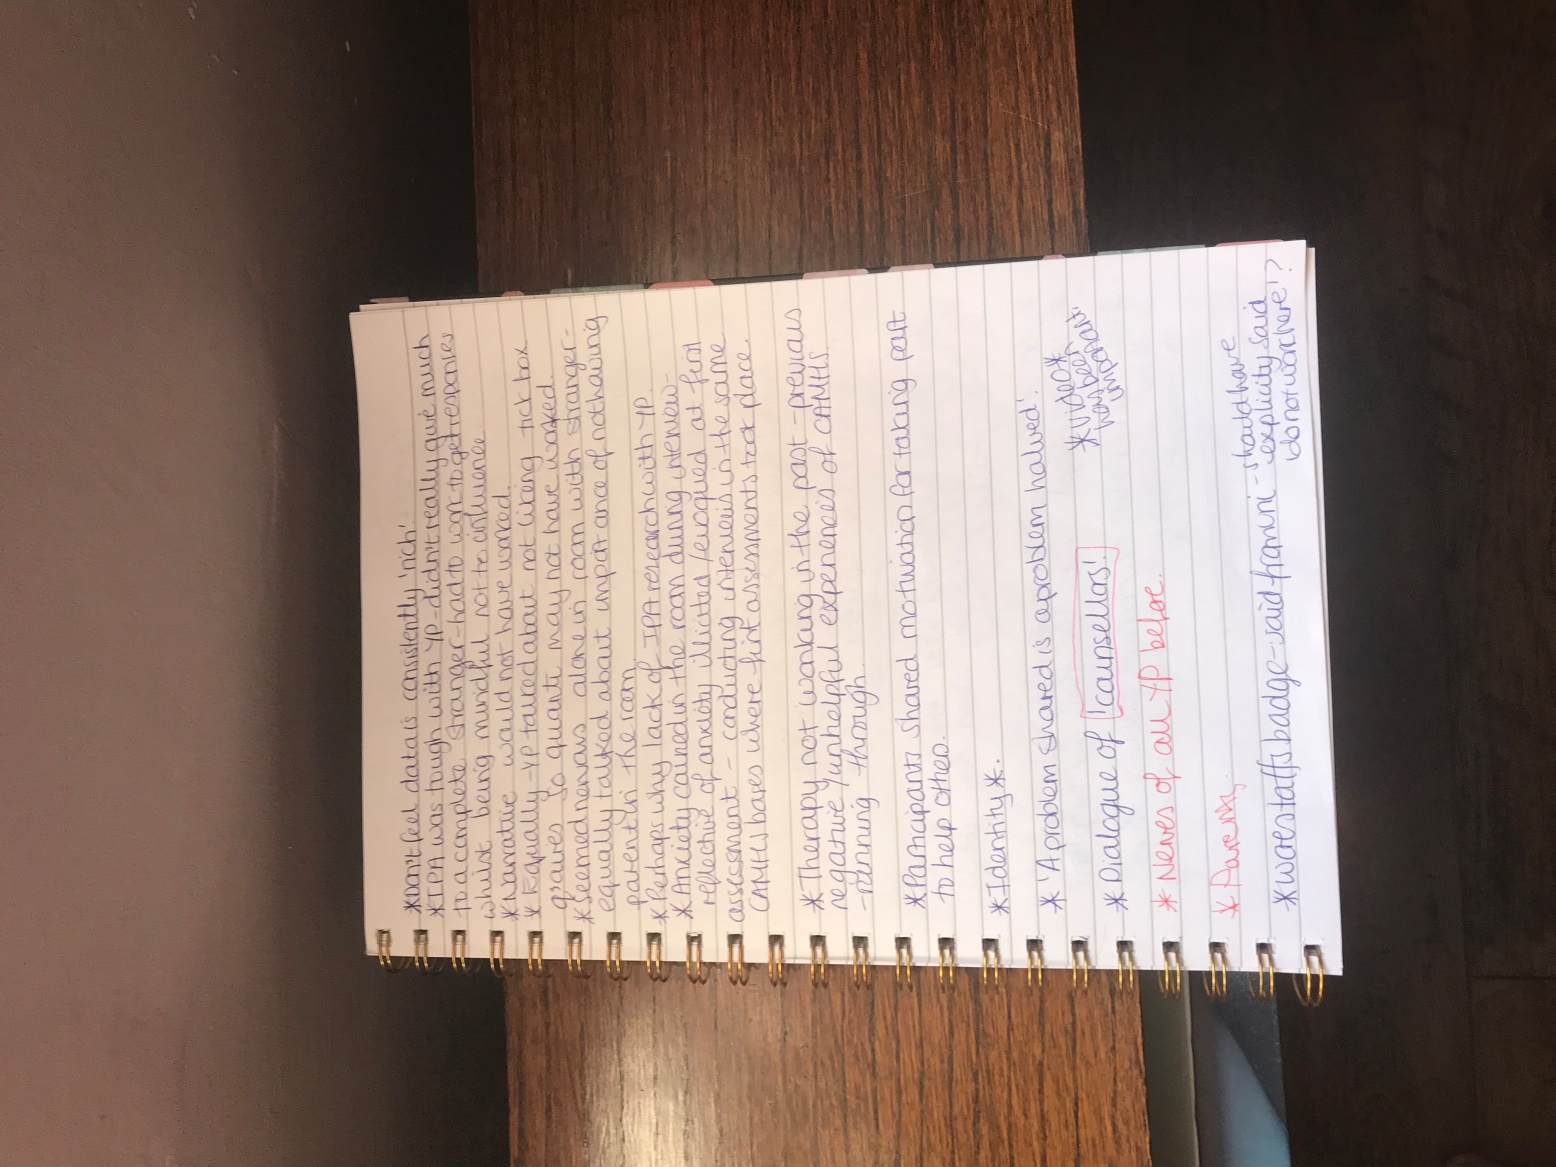 *Dont feel data is consistently 'rich'.
*IPA was tough with YP - didn't really give much
to a complete stranger - had to work to get responses
whilst being mindful not to influence
*Narrative would not have worked.
*Equally - YP talked about not liking tick box
q'aires so quant may not have worked.
*Seemed nervous alone in room with stranger -
equally talked about importance of not having
parent in the room
*Perhaps why lack of IPA research with YP.
*Anxiety carried in the room during interview -
reflective of anxiety illicited/evoqued at first
assessment - conducting interviews in the same
CAMHS bases where first assessments took place.
*Therapy not working in the past - previous
negative/unhelpful experiences of CAMHS.
- running through.
*Participants shared motivation for taking part
to help others.
*Identity*.
*'A problem shared is a problem halved'.
*Video*
has been
important.
*Dialogue of 'counsellors'!
*Nerves of all YP before.
*Parents.
*wore staffs badge - said from uni - should have
explicity said
'do not work here'?